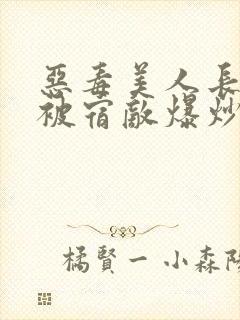 惡毒美人長
被宿敵爆炒
橘賢一 小森陽